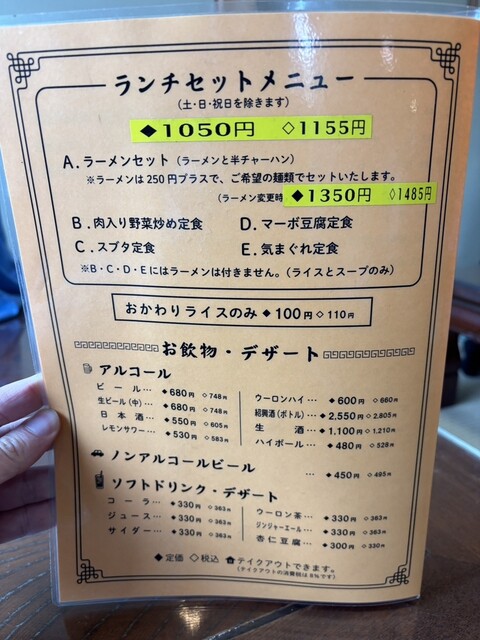 ランチセットメニュー
（土・日・祝日を除きます）
◆1050円 ◇1155円
A．ラーメンセット（ラーメンと半チャーハン）
※ラーメンは250円プラスで、ご希望の麺類でセットいたします。
（ラーメン変更時 ◆1350円 ◇1485円
B．肉入り野菜炒め定食 D．マーボ豆腐定食
C．スブタ定食 E．気まぐれ定食
※B・C・D・Eにはラーメンは付きません。（ライスとスープのみ）
おかわりライスのみ ◆100円 ◇110円
お飲物・デザート
アルコール
ビール… ◆680円 ◇748円
生ビール（中）… ◆680円 ◇748円
日本酒… ◆550円 ◇605円
レモンサワー… ◆530円 ◇583円
ウーロンハイ… ◆600円 ◇660円
紹興酒（ボトル）… ◆2,550円 ◇2,805円
生酒… ◆1,100円 ◇1,210円
ハイボール… ◆480円 ◇528円
ノンアルコールビール … ◆450円 ◇495円
ソフトドリンク・デザート
コーラ… ◆330円 ◇363円
ジュース… ◆330円 ◇363円
サイダー… ◆330円 ◇363円
ウーロン茶… ◆330円 ◇363円
ジンジャーエール… ◆330円 ◇363円
杏仁豆腐… ◆300円 ◇330円
◆定価 ◇税込 テイクアウトできます。
（テイクアウトの消費税は8％です）